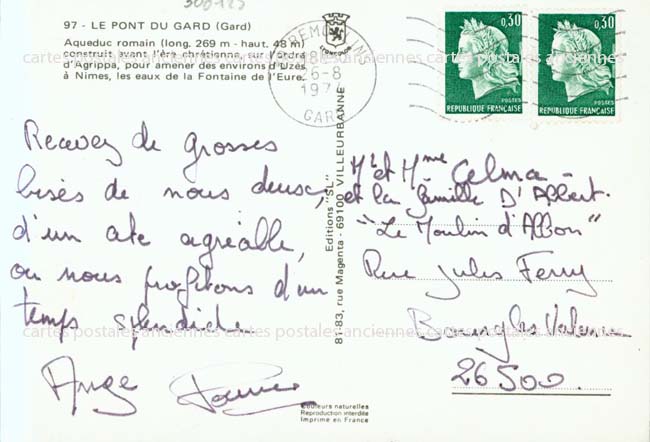 97 - LE PONT DU GARD (Gard)
Aqueduc romain (long. 269 m - haut. 48 m)
construit avant l'ère chrétienne, sur l'ordre
d'Agrippa, pour amener des environs d'Uzès
à Nimes, les eaux de la Fontaine de l'Eure.
18H
26-8
GARD
0,30
POSTES
REPUBLIQUE FRANÇAISE
0,30
POSTES
REPUBLIQUE FRANÇAISE
cartes postales anciennes cartes postales anciennes cartes postales anciennes
Recevez de grosses
bisés de nous deux,
d'un ate agréable,
ou nous profitons d'un
temps splendide.
Ange
Editions "SL"
81-83, rue Magenta - 69100 VILLEURBANNE
Mr et Mme Celma -
et la famille D'Albert.
"Le Moulin d'Albon"
Rue Jules Ferry
Bourg les Valence
26500.
cartes postales anciennes cartes postales anciennes cartes postales anciennes
Couleurs naturelles
Reproduction interdite
Imprimé en France